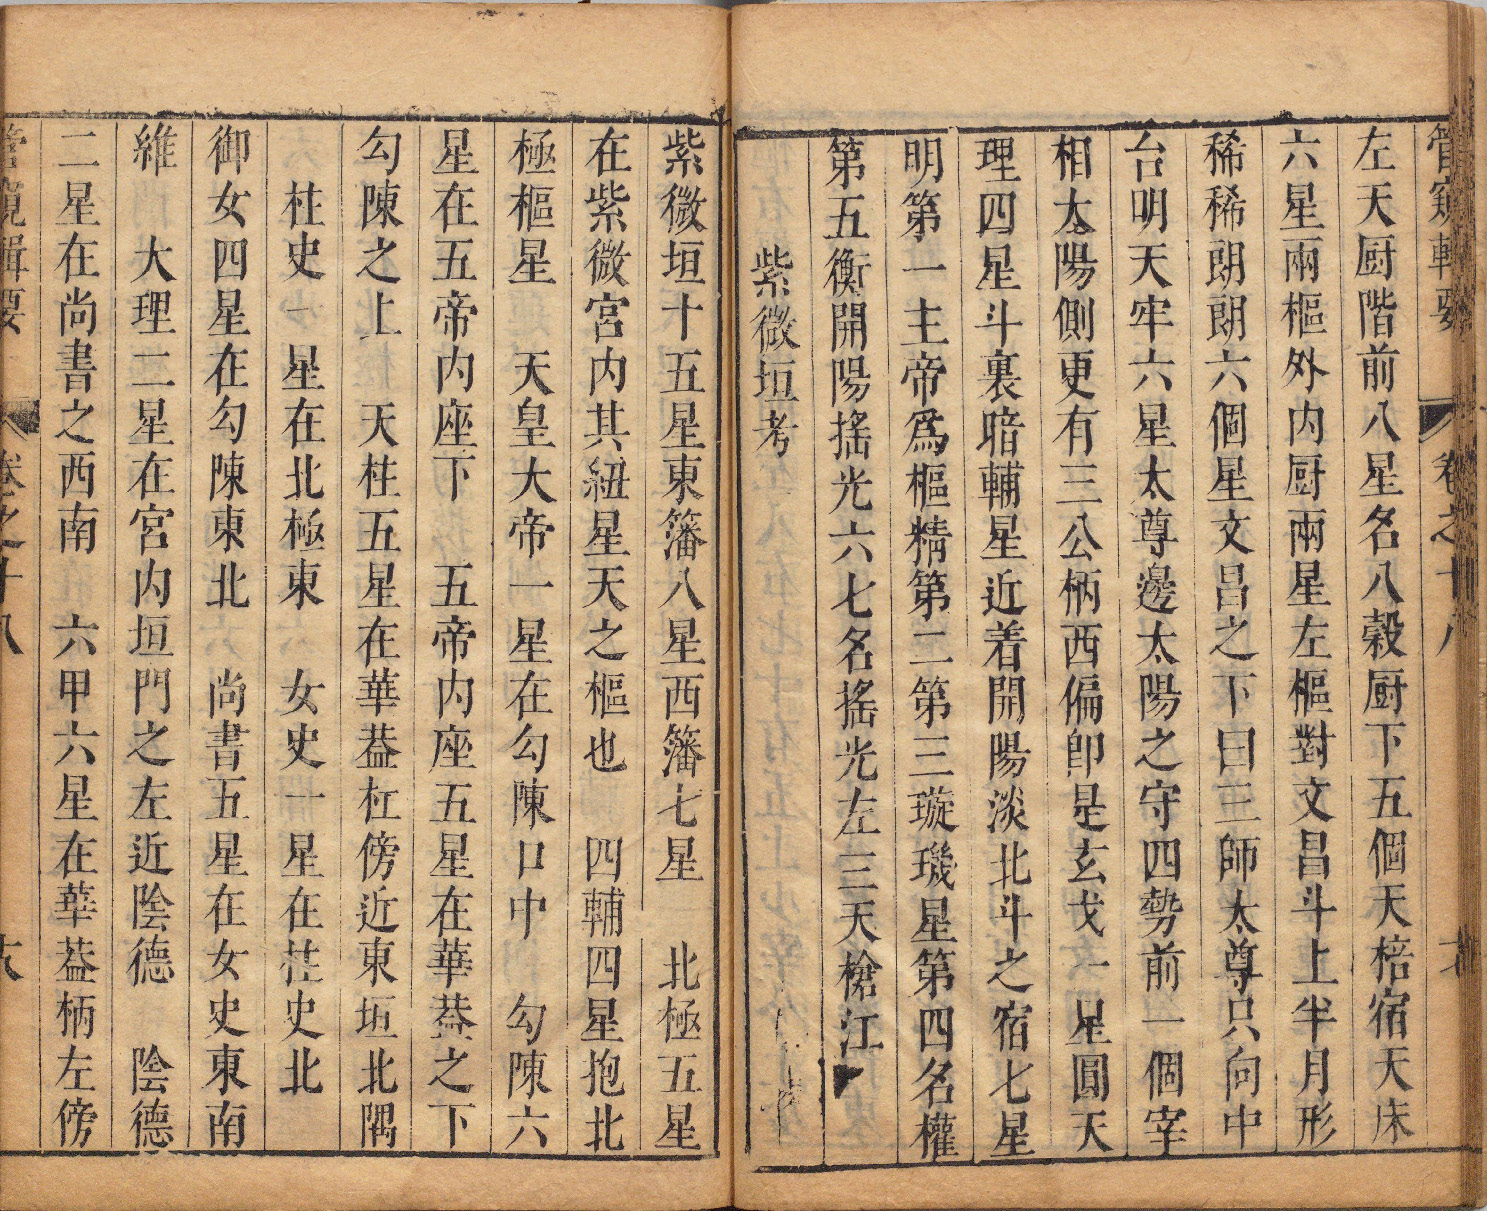 管窺輯要 卷之十八
左天厨階前八星名八穀厨下五個天棓宿天床
六星兩樞外内厨兩星左樞對文昌斗上半月形
稀稀朗朗六個星文昌之下曰三師太尊只向中
台明天牢六星太尊邊太陽之守四勢前一個宰
相太陽側更有三公柄西偏卽是玄戈一星圓天
理四星斗裏暗輔星近着開陽淡北斗之宿七星
明第一主帝爲樞精第二第三璇璣星第四名權
第五衡開陽搖光六七名搖光左三天槍江
紫微垣考
紫微垣十五星東籓八星西籓七星 北極五星
在紫微宮内其紐星天之樞也 四輔四星抱北
極樞星 天皇大帝一星在勾陳口中 勾陳六
星在五帝内座下 五帝内座五星在華葢之下
勾陳之上 天柱五星在華葢杠傍近東垣北隅
柱史一星在北極東 女史一星在柱史北
御女四星在勾陳東北 尚書五星在女史東南
維 大理二星在宮内垣門之左近陰德 陰德
二星在尚書之西南 六甲六星在華葢柄左傍
管窺輯要 卷之十八 六